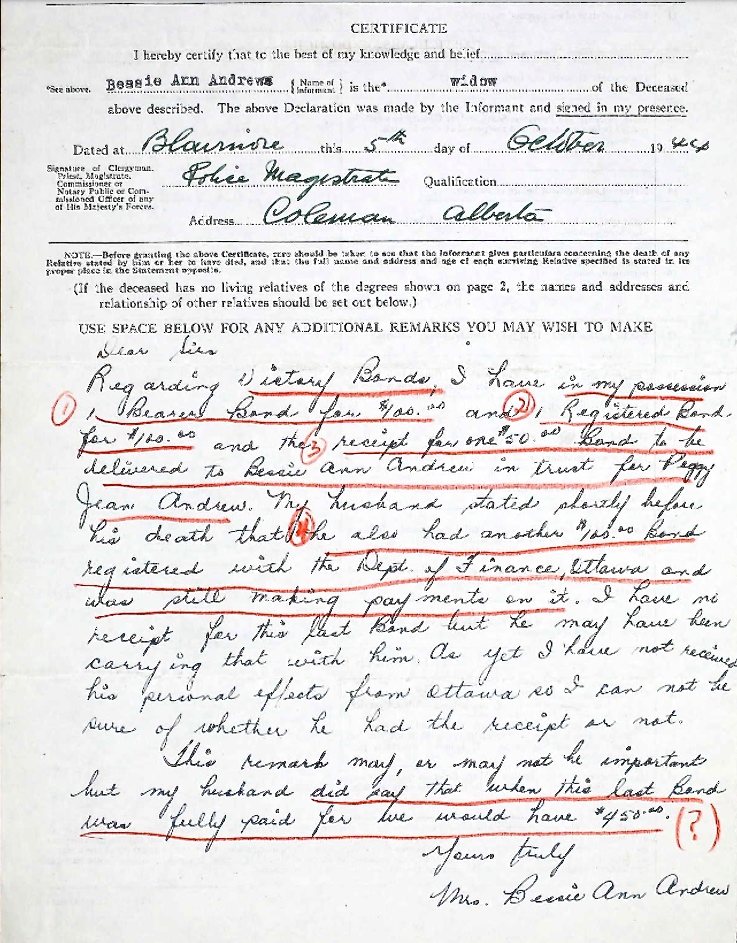 CERTIFICATE
I hereby certify that to the best of my knowledge and belief
*See above. Bessie Ann Andrews { Name of Informant } is the* widow of the Deceased
above described. The above Declaration was made by the Informant and signed in my presence.
Dated at Blairmore this 5th day of October 1944
Signature of Clergyman, Priest, Magistrate, Commissioner or Notary Public or Commissioned Officer of any of His Majesty's Forces. Police Magistrate Qualification
Address Coleman Alberta
NOTE.—Before granting the above Certificate, care should be taken to see that the informant gives particulars concerning the death of any
Relative stated by him or her to have died, and that the full name and address and age of each surviving Relative specified is stated in its
proper place in the Statement opposite.
(If the deceased has no living relatives of the degrees shown on page 2, the names and addresses and
relationship of other relatives should be set out below.)
USE SPACE BELOW FOR ANY ADDITIONAL REMARKS YOU MAY WISH TO MAKE
Dear Sirs
Regarding Victory Bonds, I have in my possession
1 1 Bearer Bond for $100.00 and 2 1 Registered Bond
for $100.00 and the 3 receipt for one $50.00 Bond to be
delivered to Bessie Ann Andrew in trust for Peggy
Jean Andrew. My husband stated shortly before
his death that 4 he also had another $100.00 Bond
registered with the Dept. of Finance, Ottawa and
was still making payments on it. I have no
receipt for this last Bond but he may have been
carrying that with him. As yet I have not received
his personal effects from Ottawa so I can not be
sure of whether he had the receipt or not.
This remark may, or may not be important
but my husband did say that when this last Bond
was fully paid for we would have $450.00. (?)
Yours truly
Mrs. Bessie Ann Andrew